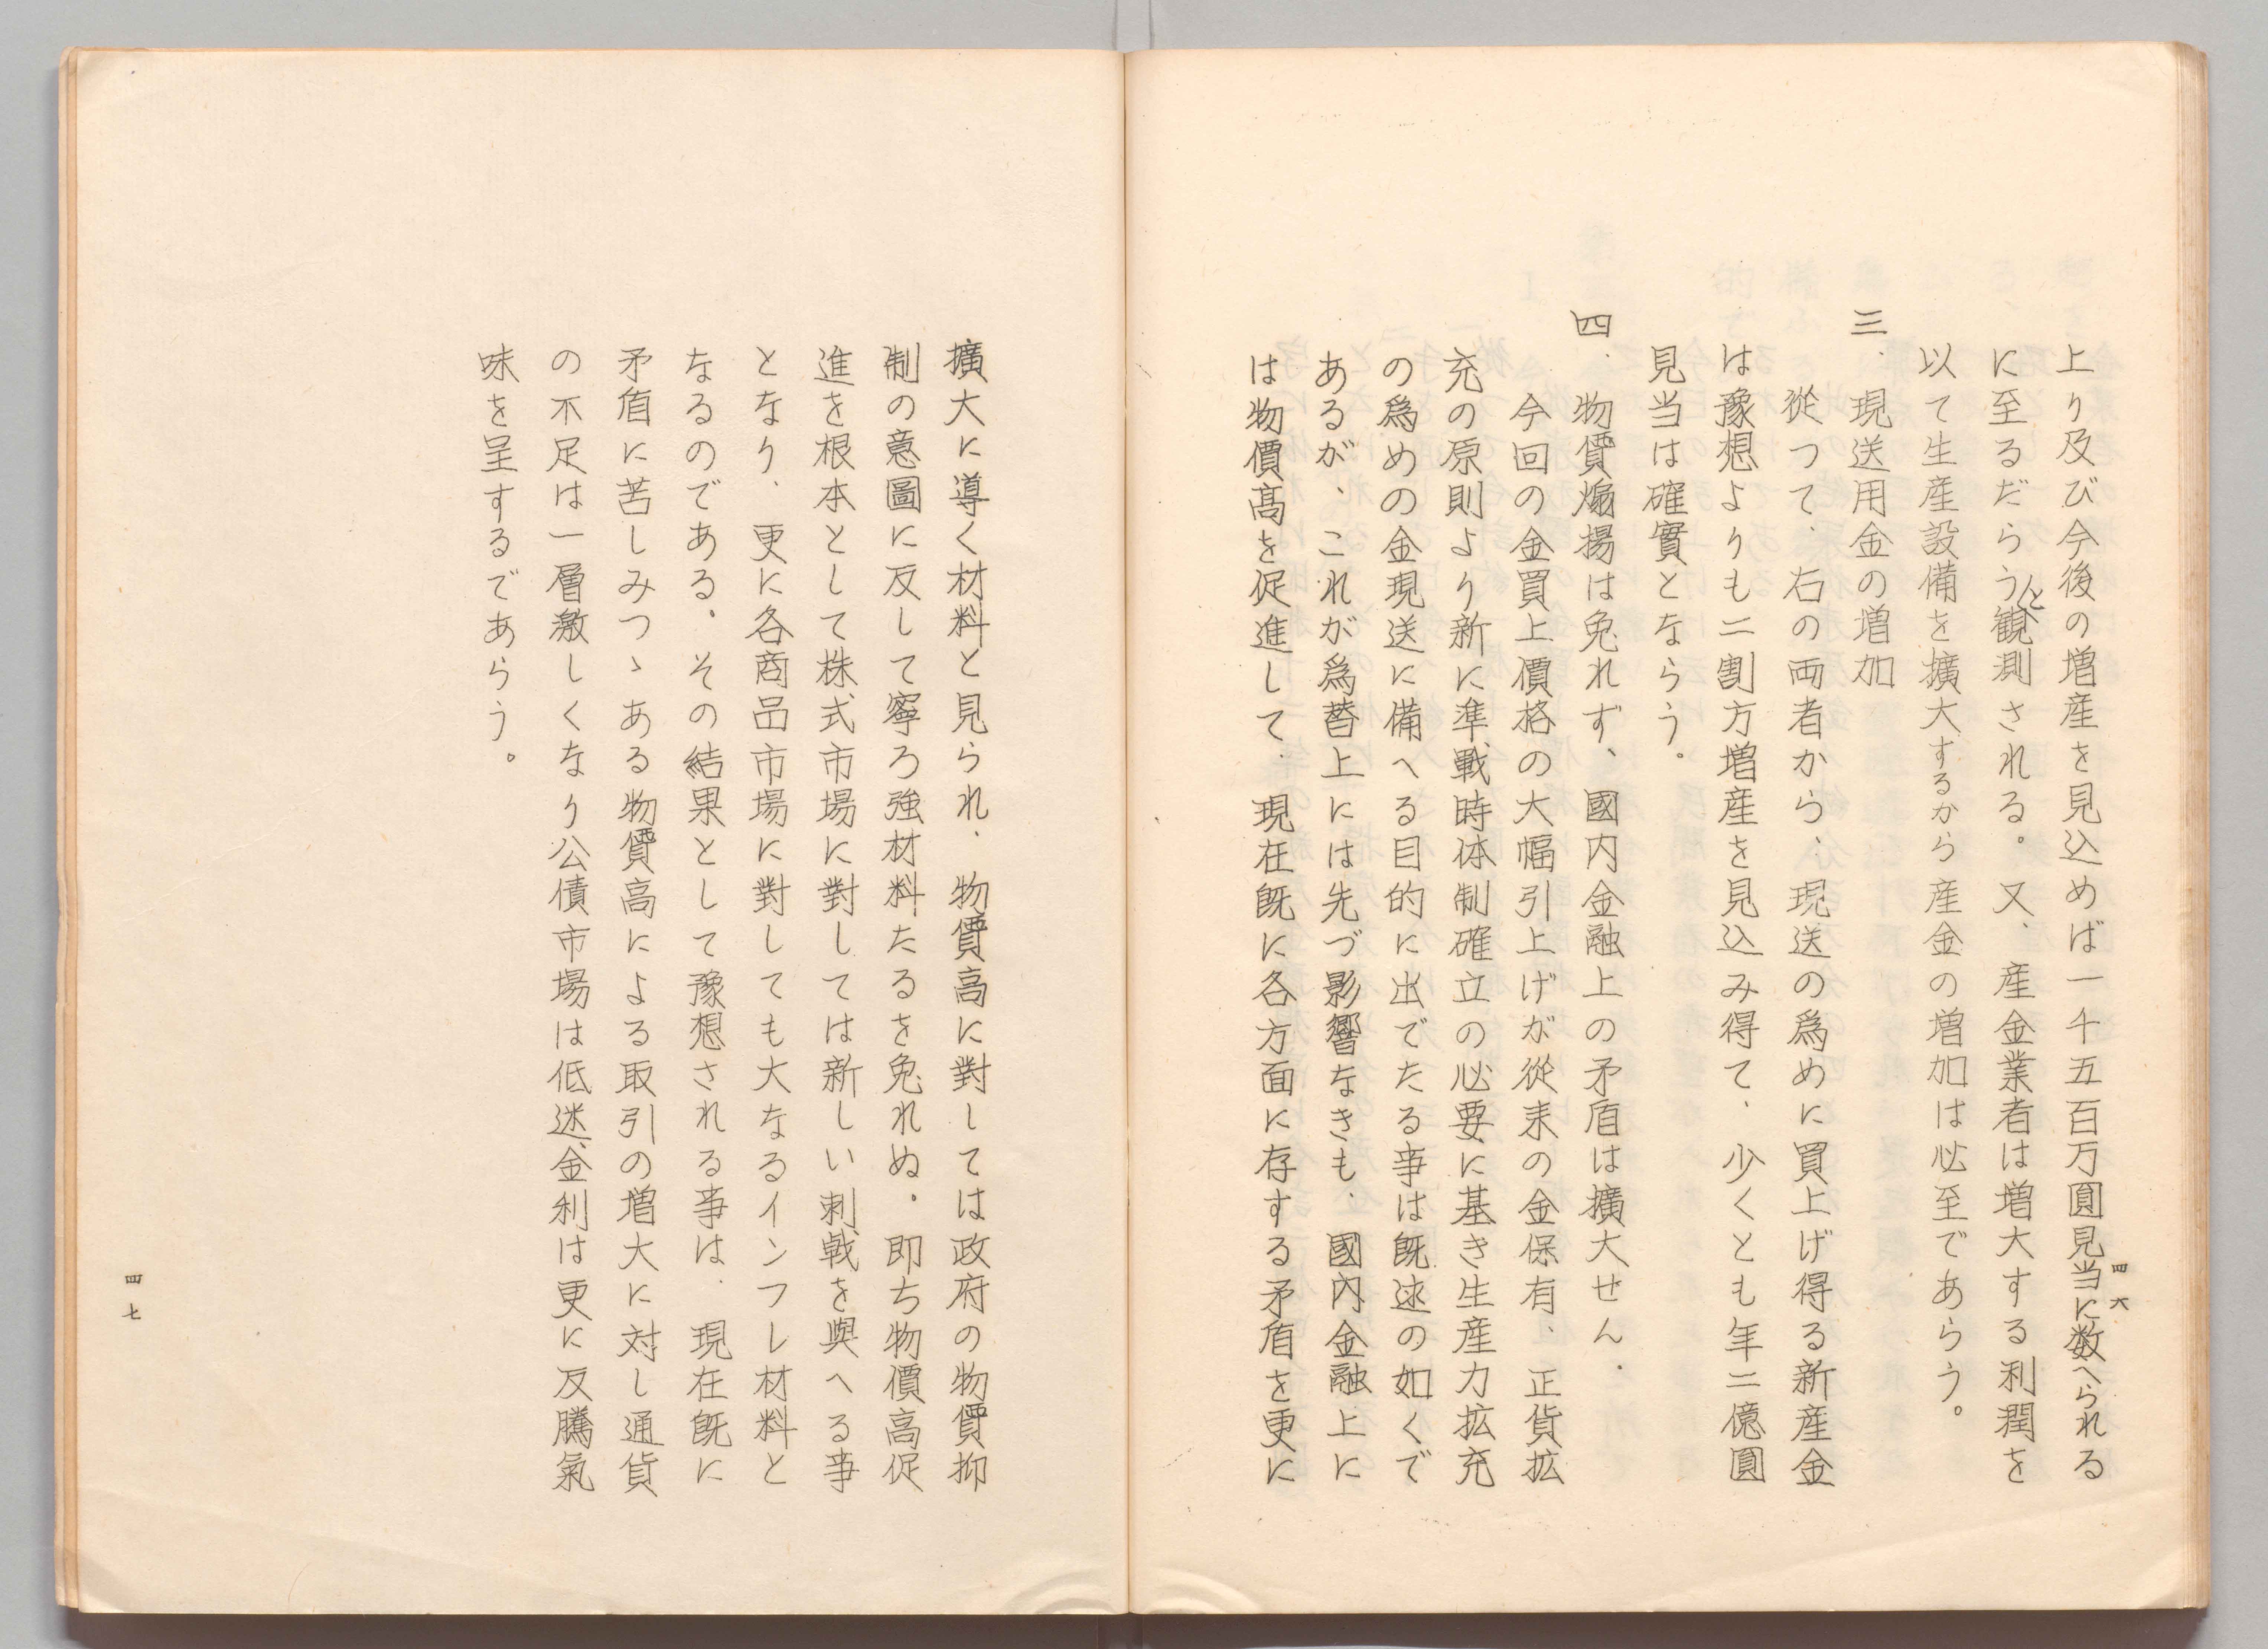 上り及び今後の増産を見込めば一千五百万圓見当に数へられる
に至るだらうと観測される。又、産金業者は増大する利潤を
以て生産設備を擴大するから産金の増加は必至であらう。
三、現送用金の増加
従つて、右の両者から、現送の爲めに買上げ得る新産金
は豫想よりも二割方増産を見込み得て、少くとも年二億圓
見当は確實とならう。
四、物價煽揚は免れず、國内金融上の矛盾は擴大せん、
今回の金買上價格の大幅引上げが従来の金保有、正貨拡
充の原則より新に準戦時体制確立の必要に基き生産力拡充
の爲めの金現送に備へる目的に出でたる事は既述の如くで
あるが、これが爲替上には先づ影響なきも、國内金融上に
は物價高を促進して、現在既に各方面に存する矛盾を更に
四六
擴大に導く材料と見られ、物價高に對しては政府の物價抑
制の意圖に反して寧ろ強材料たるを免れぬ。即ち物價高促
進を根本として株式市場に對しては新しい刺戟を與へる事
となり、更に各商品市場に對しても大なるインフレ材料と
なるのである、その結果として豫想される事は、現在既に
矛盾に苦しみつゝある物價高による取引の増大に対し通貨
の不足は一層激しくなり公債市場は低迷、金利は更に反騰氣
味を呈するであらう。
四七